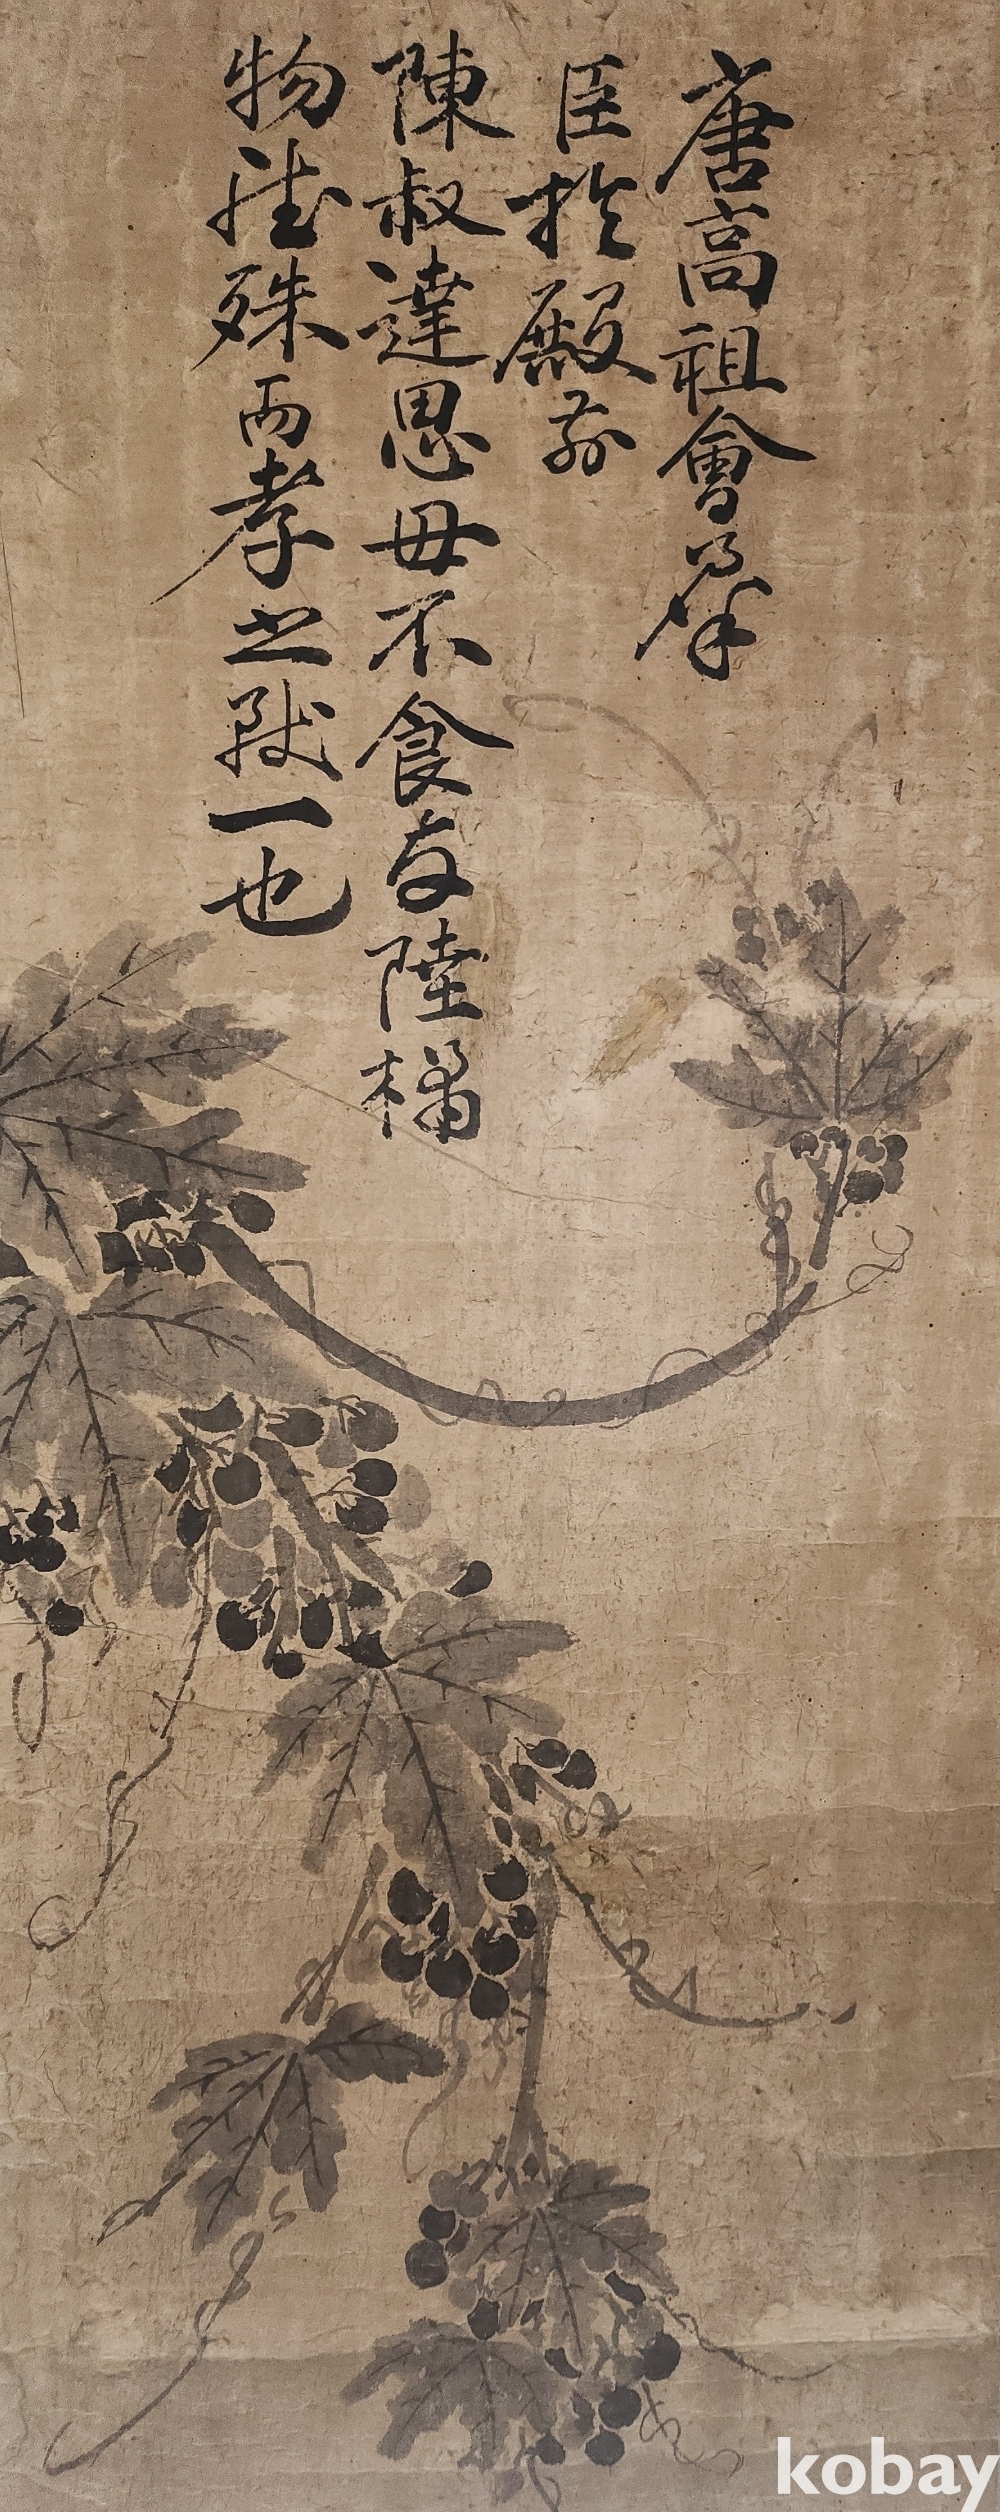 唐高祖會羣
臣於殿前
陳叔達思母不食與陸橘
物雖殊而孝之誠一也
kobay